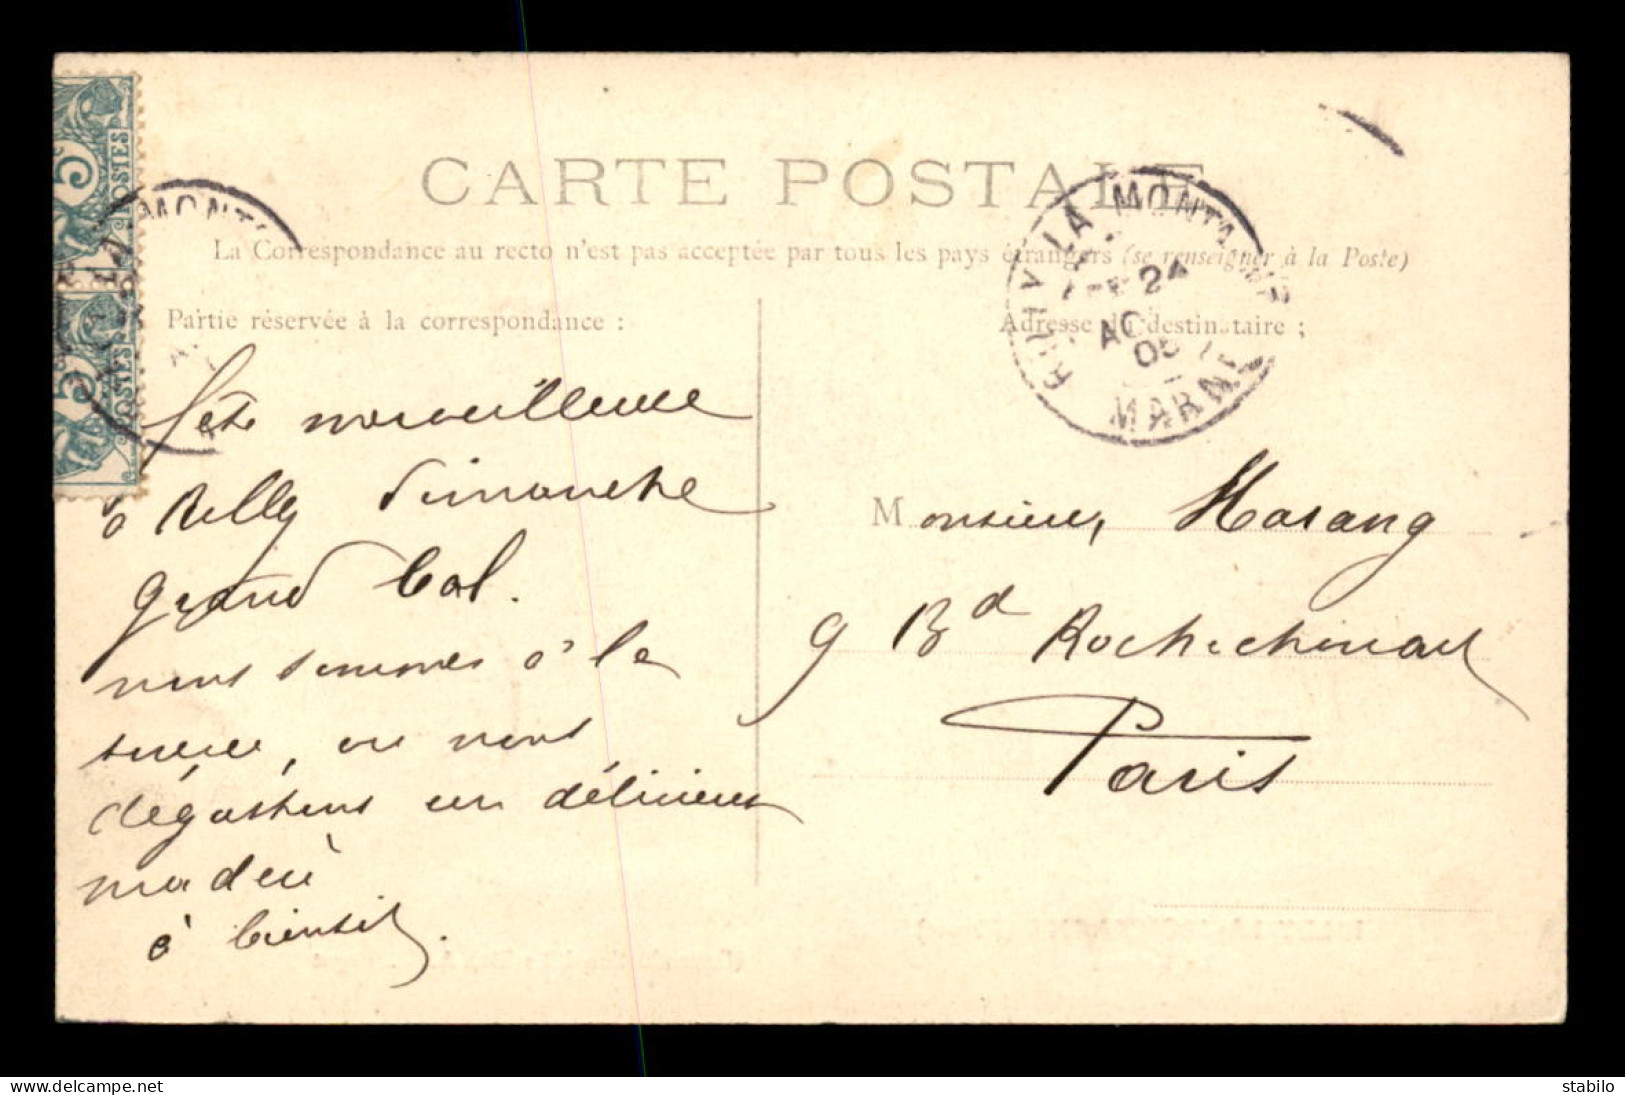 CARTE POSTALE
La Correspondance au recto n'est pas acceptée par tous les pays étrangers (se renseigner à la Poste)
Partie réservée à la correspondance :
Adresse du destinataire ;
5 POSTES
5 POSTES
MONT
RILLY LA MONTAGNE
24
AO
05
MARNE
fête merveilleuse
à Rilly dimanche
grand bal.
nous sommes à la
source, ou nous
dégustons un délicieux
à bientôt.
Monsieur Marang
9 Bd Rochechouart
Paris
delcampe.net
stabilo